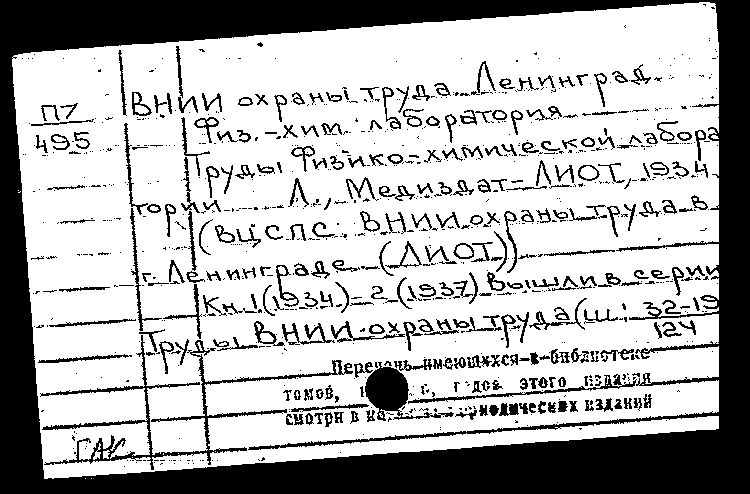 П7
495
ВНИИ охраны труда. Ленинград.
Физ.-хим. лаборатория
Труды Физико-химической лабора
тории Л., Медиздат-ЛИОТ, 1934
(ВЦСПС. ВНИИ охраны труда в
г. Ленинграде (ЛИОТ))
Кн. 1 (1934)-2 (1937) вышли в серии
Труды ВНИИ охраны труда (ш: 32-19
124
Перечень имеющихся в библиотеке
томов, г, годов этого издания
смотри в периодических изданий
ГАК